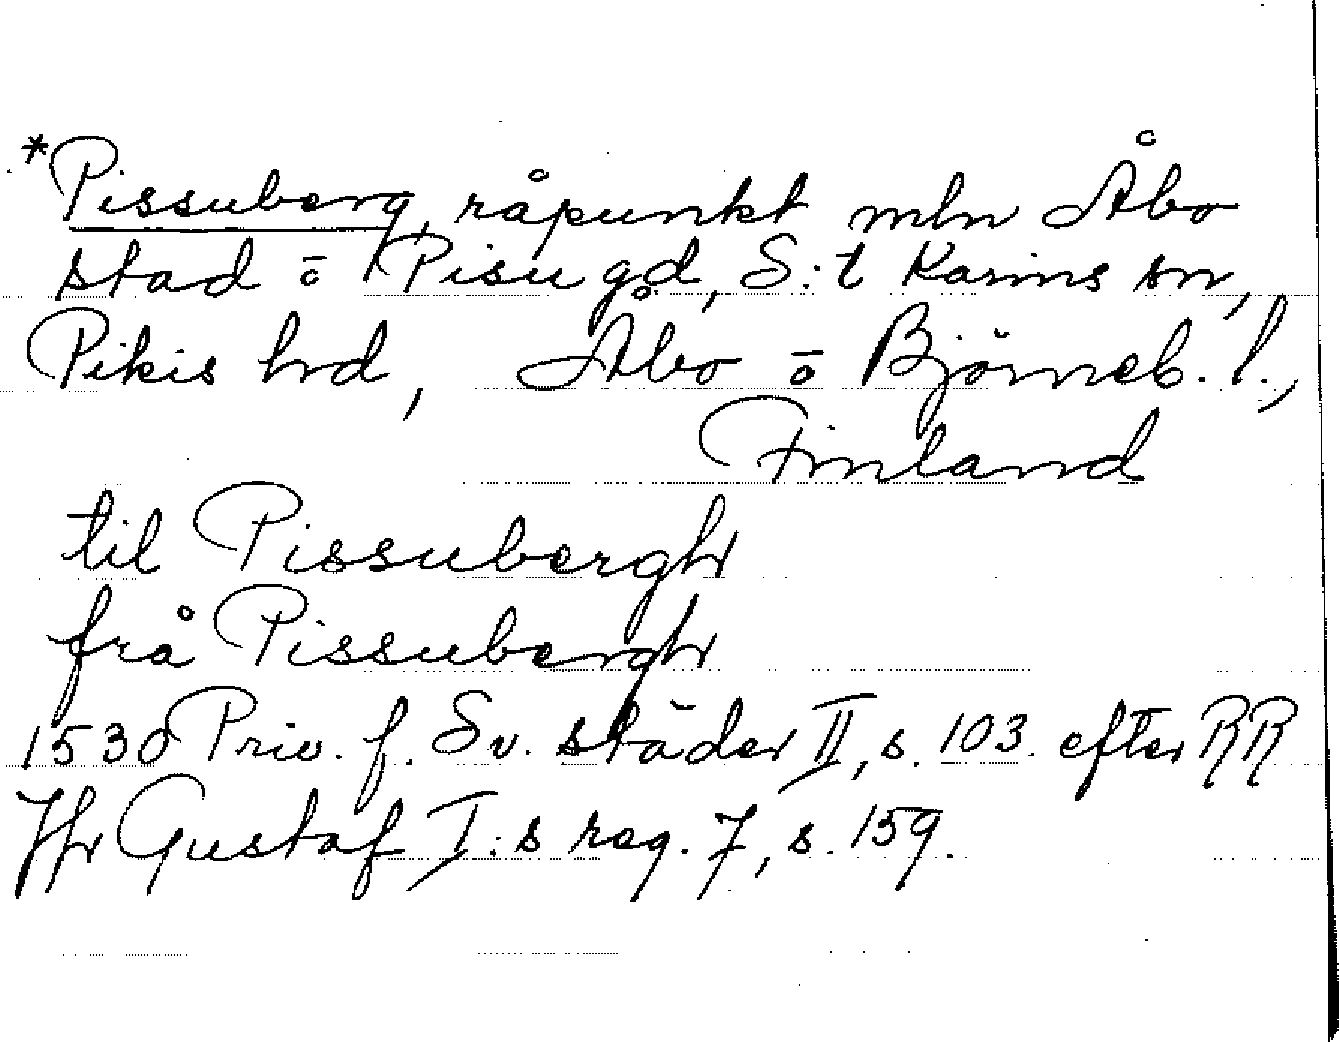 *Pissuberg, råpunkt mln Åbo
stad ō Pisu gd, S:t Karins sn,
Pikis hrd, Åbo ō Björneb. l.,
Finland
til Pissubergh
frå Pissubergh
1530 Priv. f. Sv. städer II, s. 103 efter RR
Jfr Gustaf I:s reg. 7, s. 159.